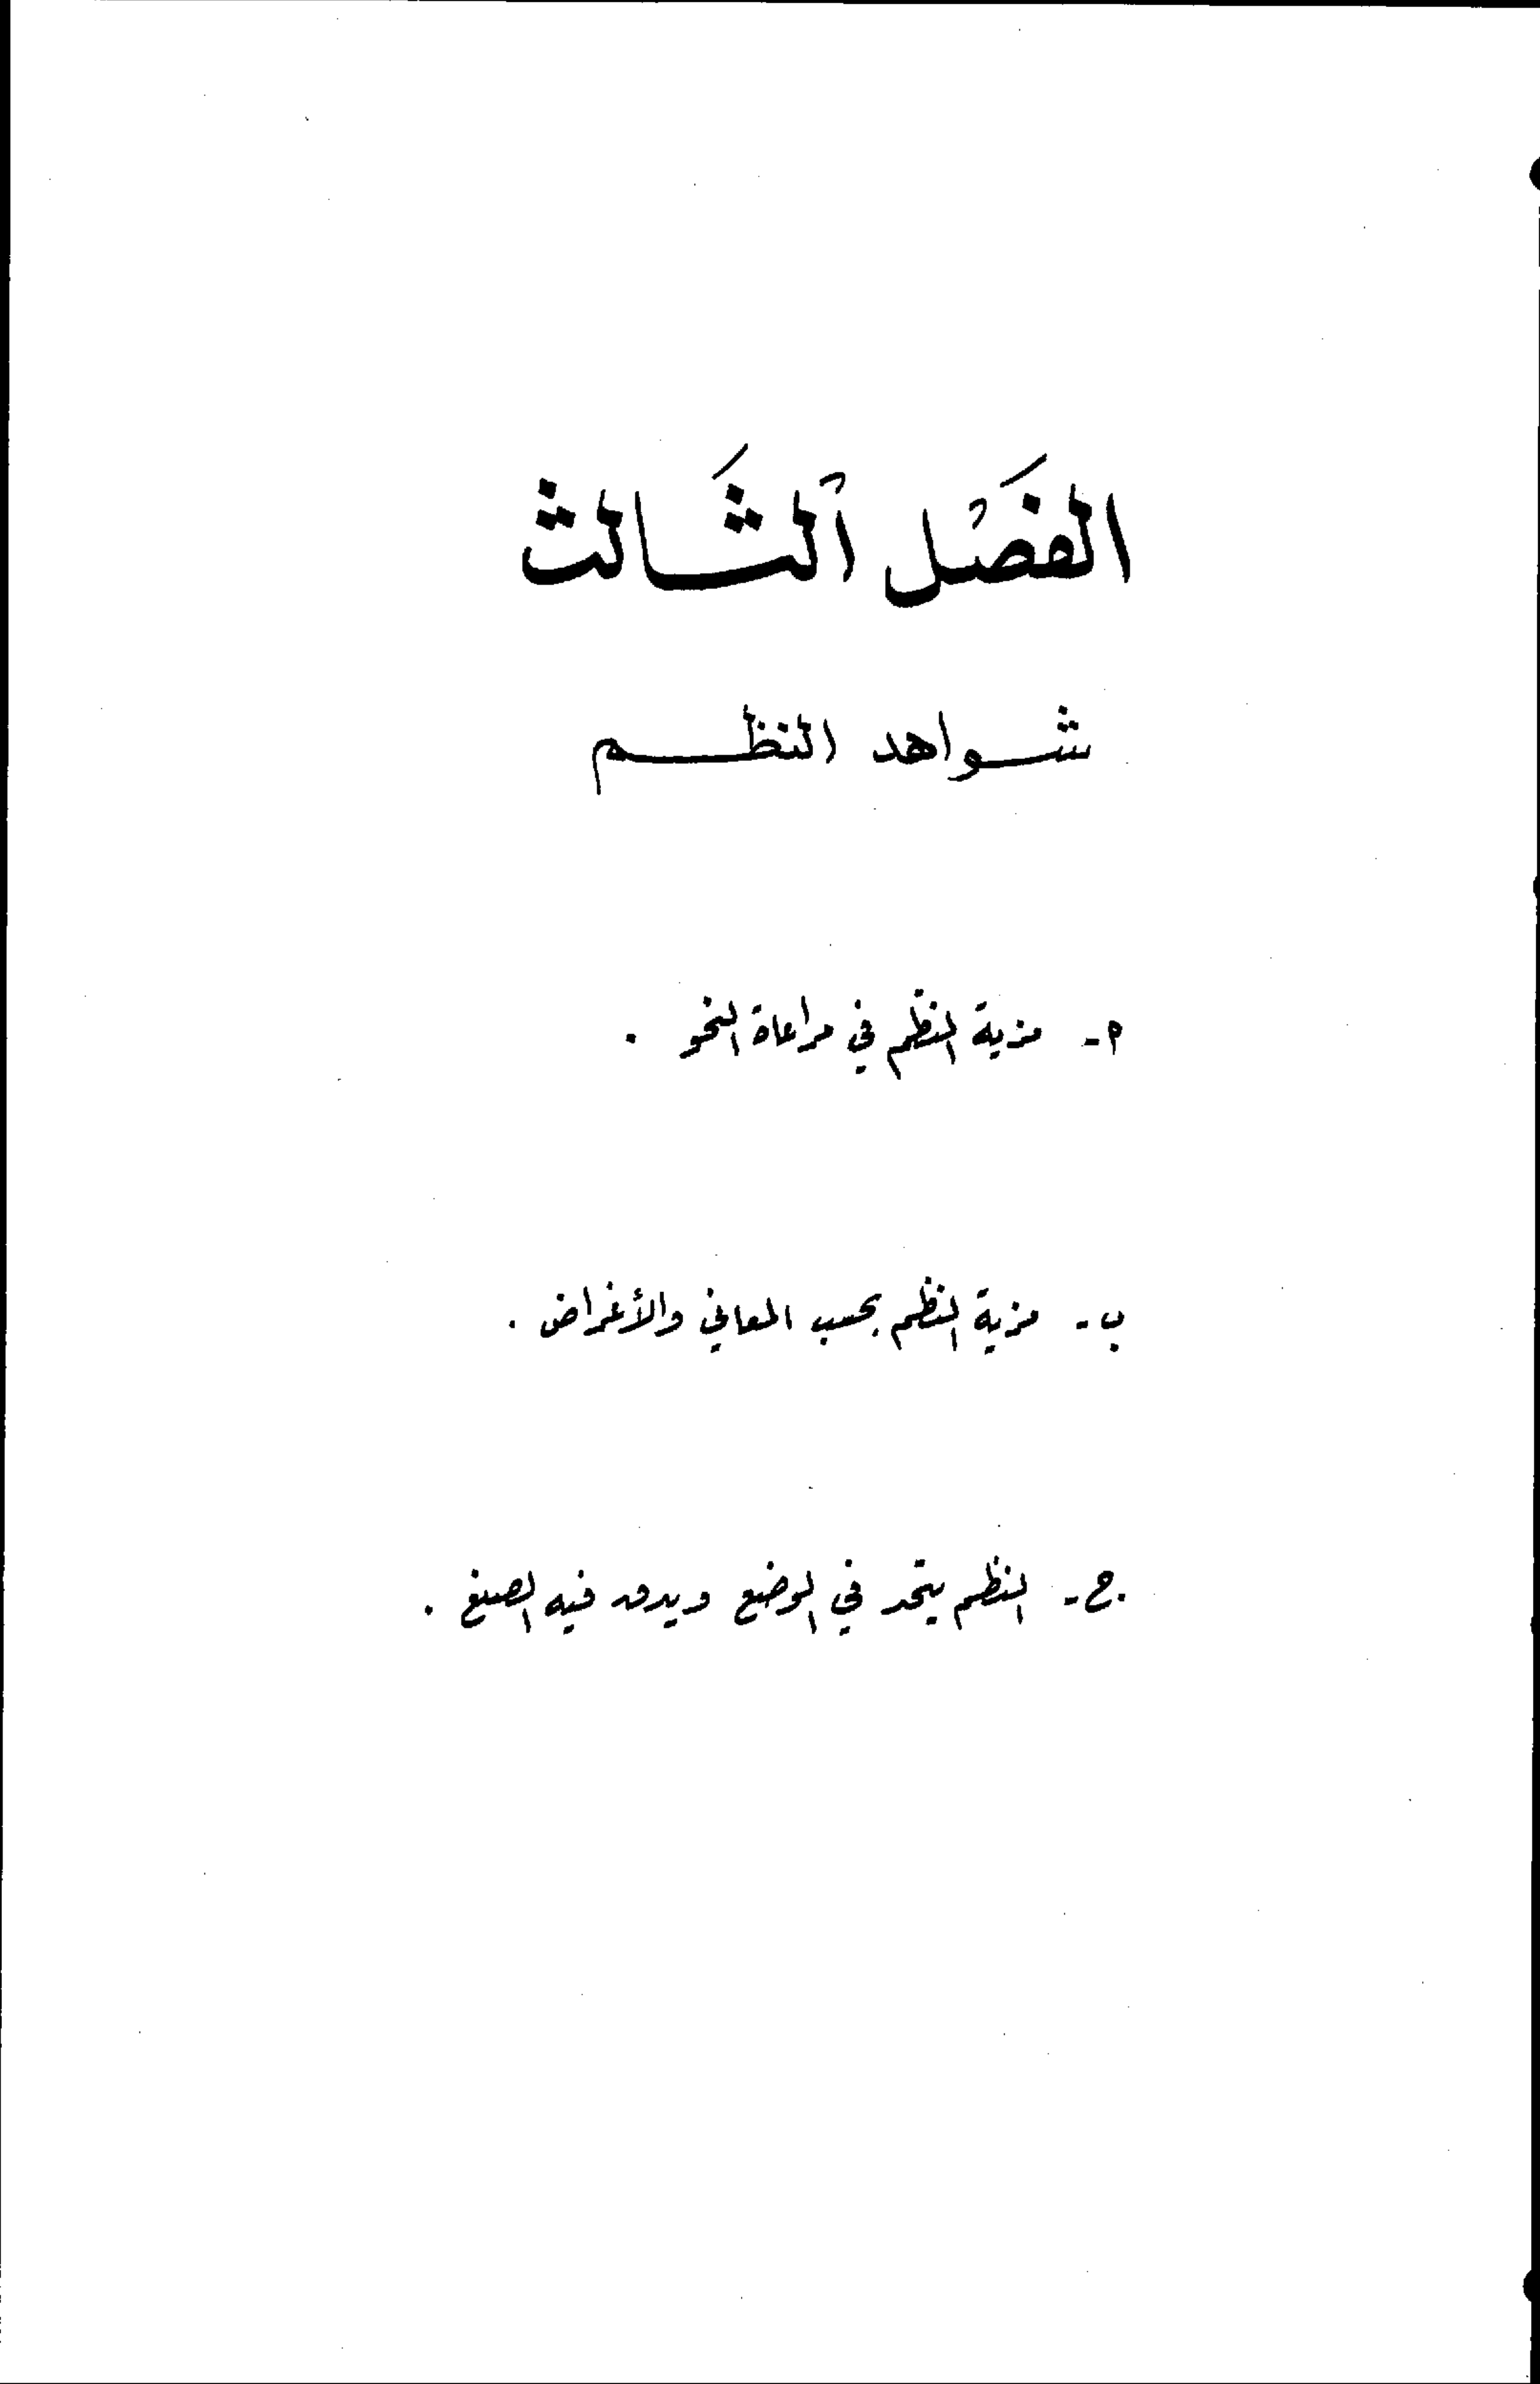 الفَصْل الثَّالث
شواهد النظم
أ- مزية النظم في مراعاة النحو .
ب- مزية النظم بحسب المعاني والأغراض .
ج- النظم يتحد في الوضع ويدق فيه الصنع .